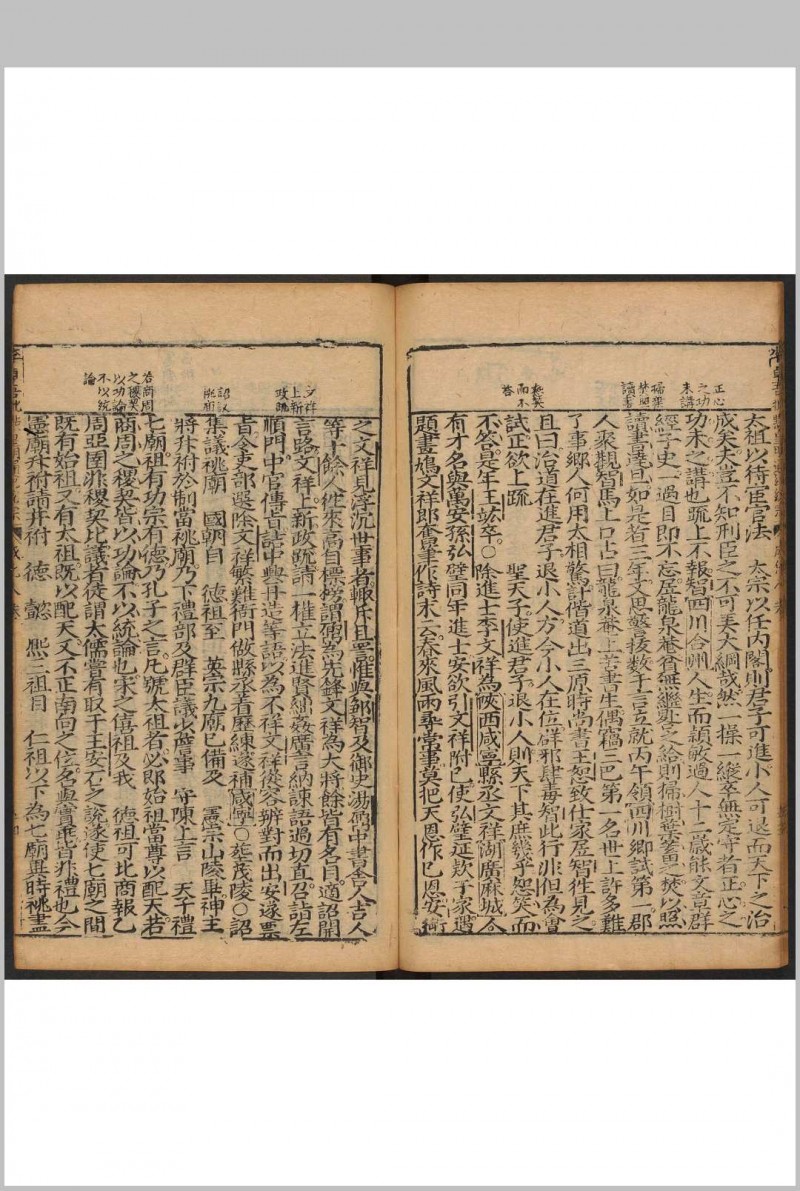 正心
之功
未講
掃樹
葉照
讀書
恕笑
而不
答
太祖以待臣官法　太宗以任內閣則君子可進小人可退而天下之治
成矣夫豈不知刑臣之不可弄大綱哉然一操一縱卒無定守者正心之
功未之講也疏上不報智四川合州人生而穎敏過人十二歲能文章群
經子史一過目即不忘居龍泉菴貧無繼晷之給則掃樹葉蓄之焚以照
讀書達旦如是者三年文思警拔數千言立就丙午領四川鄉試第一郡
人聚觀智馬上口占曰龍泉菴上苦書生偶竊三巴第一名世上許多難
了事鄉人何用太相驚計偕道出三原時尚書王恕致仕家居智往見之
且曰治道在進君子退小人方今小人在位群邪肆毒智此行非但為會
試正欲上疏　聖天子使進君子退小人則天下其庶幾乎恕笑而
不答是年王竑卒○除進士李文祥為陝西咸寧縣丞文祥湖廣麻城人
有才名與萬安孫弘璧同年進士安欲引文祥附己使弘璧延款于家遇
題畫鳩文祥即奮筆作詩末云春來風雨尋常事莫把天恩作己恩安銜
文祥
上新
政疏
詔議
祧廟
若商周
之稷契
以功論
不以統
論
之文祥見浮沉世事者輒斥且罵惟與鄒智及御史湯鼐中書舍人吉人
等十餘人從來高自標榜謂鼐為先鋒文祥為大將餘皆有名目適詔開
言路文祥上新政疏請一權立法進賢絀姦廣言納諫語過切直召詣左
順門中官傳旨詰中興再造等語以為不祥文祥從容辨對而出安遂票
旨令吏部選除文祥繁難衙門做縣丞者歷練遂補咸寧○葬茂陵○詔
集議祧廟　國朝自　德祖至　英宗九廟已備及　憲宗山陵畢神主
將升祔於制當祧廟乃下禮部及群臣議少詹事　守陳上言　天子禮
七廟祖有功宗有德乃孔子之言凡號太祖者必即始祖當尊以配天若
商周之稷契皆以功論不以統論也宋之僖祖及我　德祖可比商報乙
周亞圉非稷契比議者徒謂太儒嘗有取于王安石之說遂使七廟之間
既有始祖又有太祖既以配天又不正南向之位名與實乖皆非禮也今
憲廟升祔請并祔　德　懿　熙三祖自　仁祖以下為七廟異時祧盡